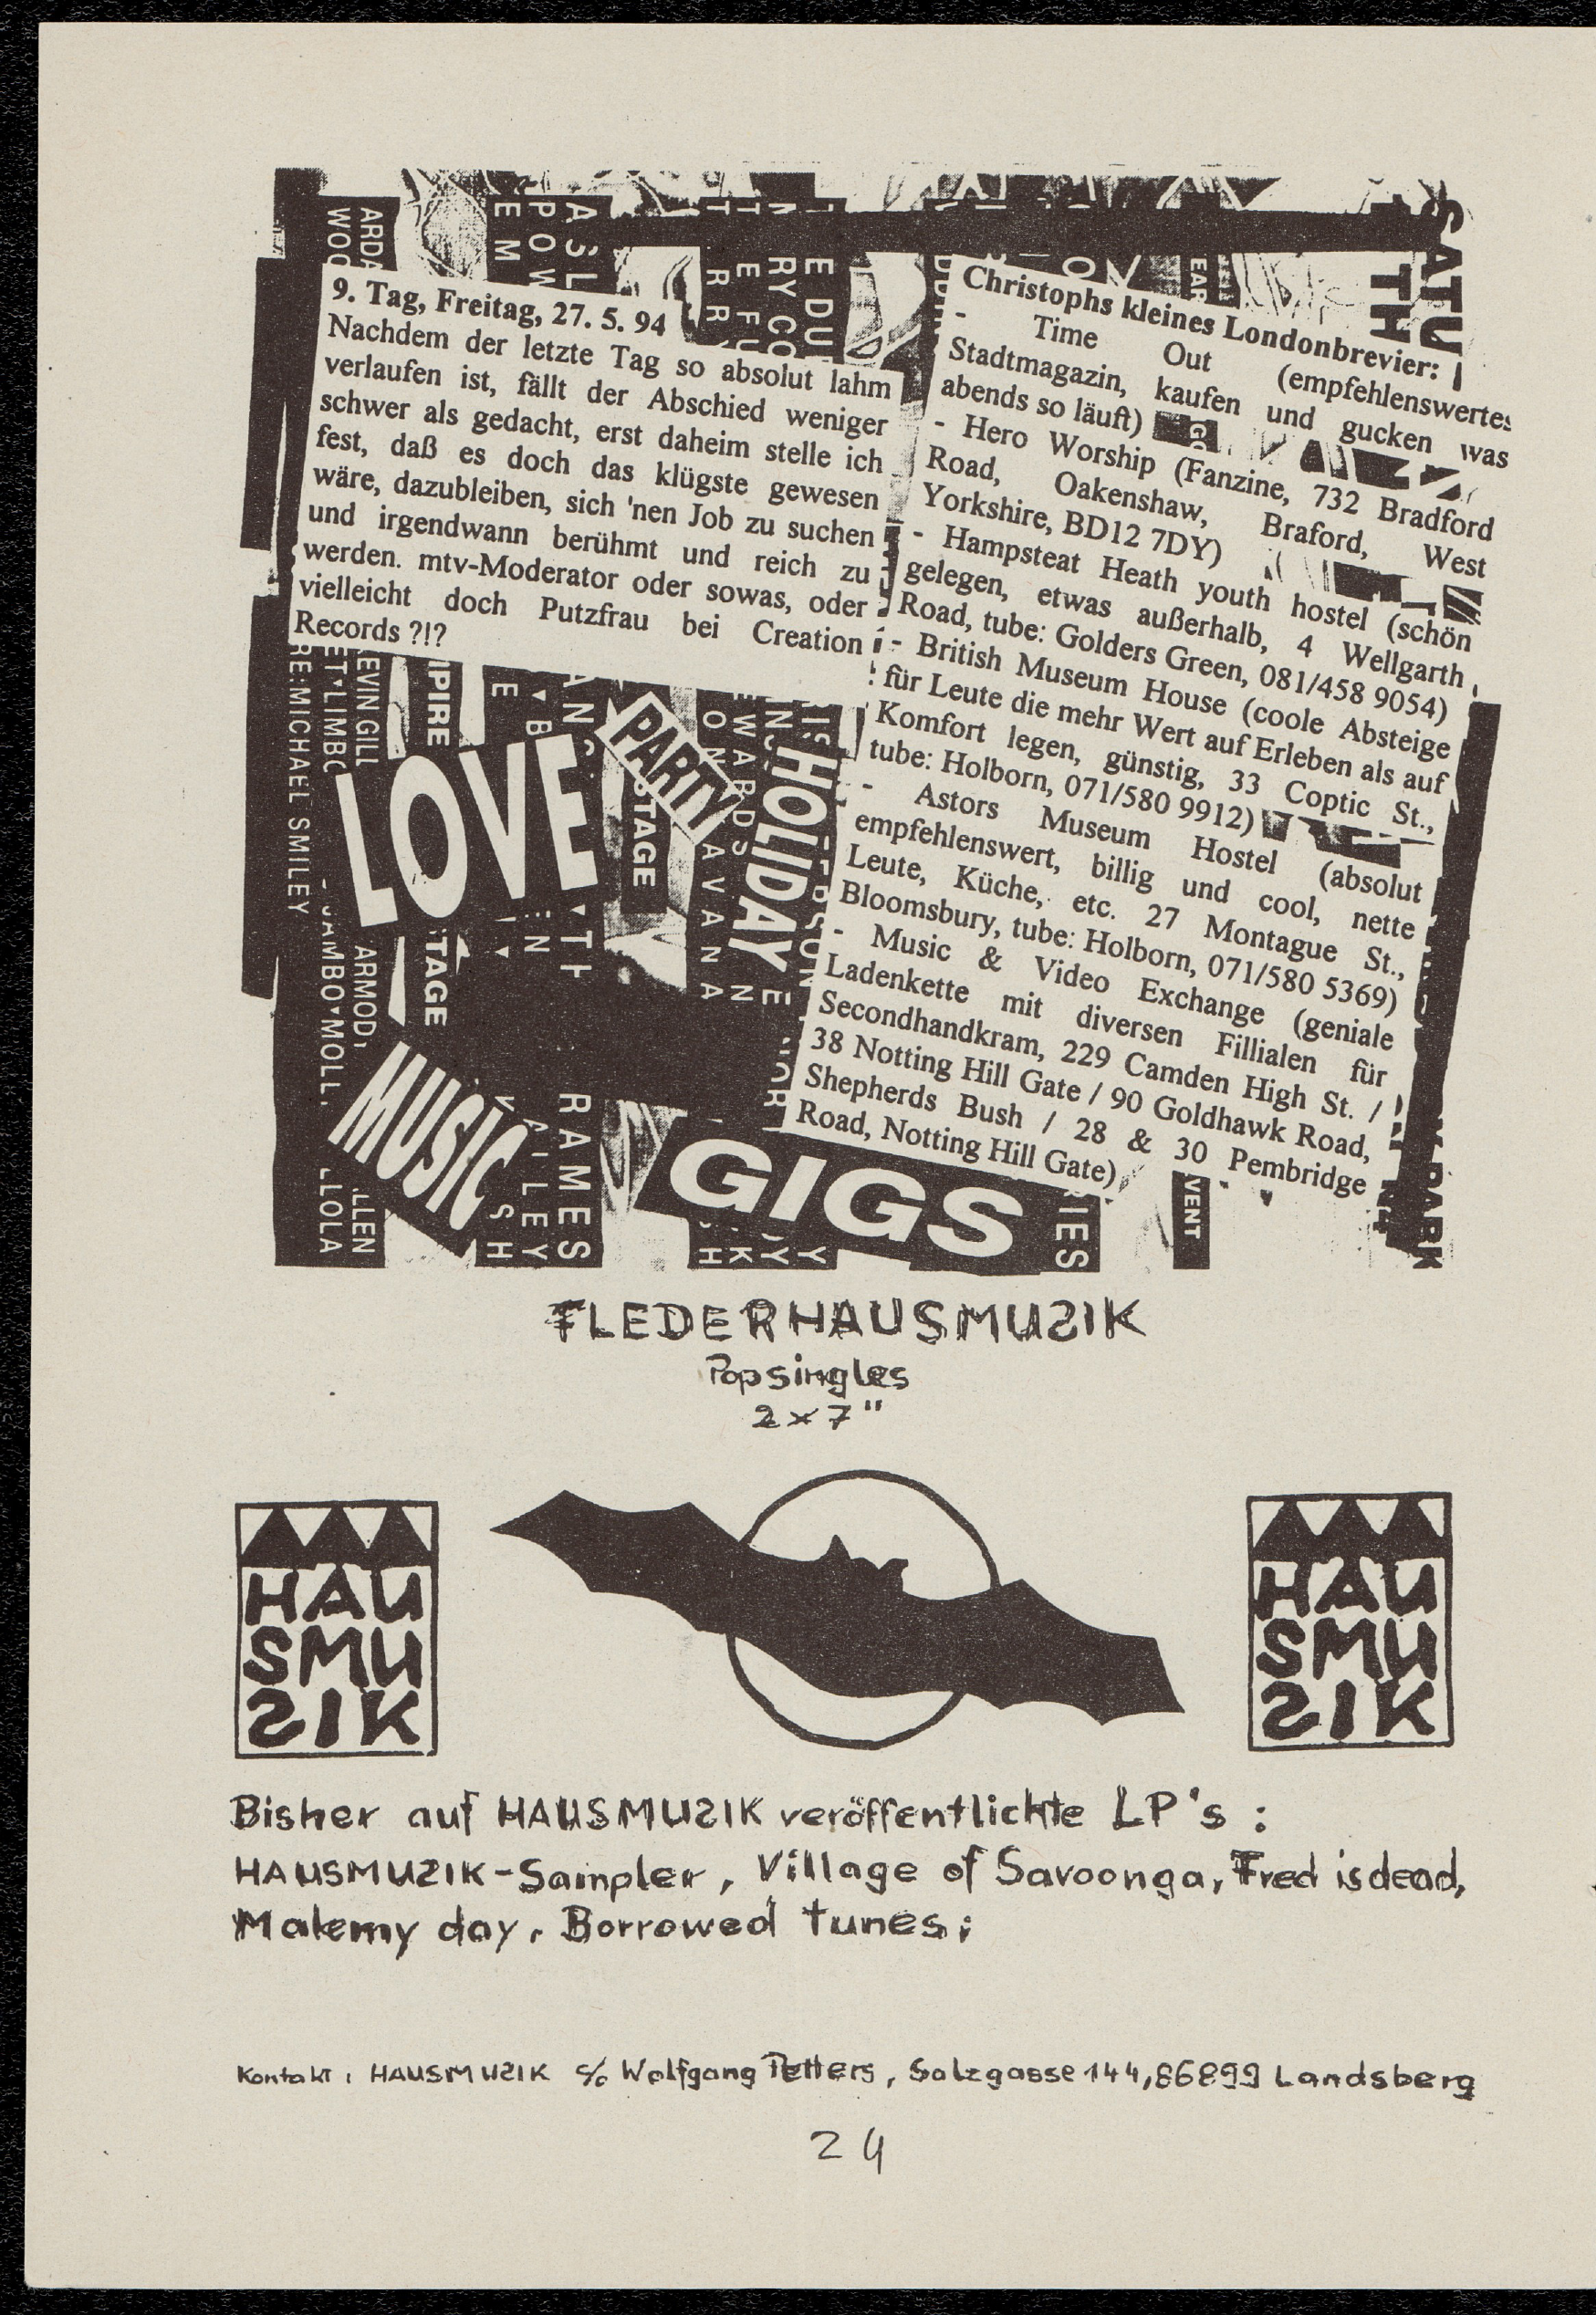 9. Tag, Freitag, 27. 5. 94
Nachdem der letzte Tag so absolut lahm
verlaufen ist, fällt der Abschied weniger
schwer als gedacht, erst daheim stelle ich
fest, daß es doch das klügste gewesen
wäre, dazubleiben, sich 'nen Job zu suchen
und irgendwann berühmt und reich zu
werden. mtv-Moderator oder sowas, oder
vielleicht doch Putzfrau bei Creation
Records ?!?
Christophs kleines Londonbrevier:
- Time Out (empfehlenswertes
Stadtmagazin, kaufen und gucken was
abends so läuft)
- Hero Worship (Fanzine, 732 Bradford
Road, Oakenshaw, Braford, West
Yorkshire, BD12 7DY)
- Hampsteat Heath youth hostel (schön
gelegen, etwas außerhalb, 4 Wellgarth
Road, tube: Golders Green, 081/458 9054)
- British Museum House (coole Absteige
für Leute die mehr Wert auf Erleben als auf
Komfort legen, günstig, 33 Coptic St.,
tube: Holborn, 071/580 9912)
- Astors Museum Hostel (absolut
empfehlenswert, billig und cool, nette
Leute, Küche, etc. 27 Montague St.,
Bloomsbury, tube: Holborn, 071/580 5369)
- Music & Video Exchange (geniale
Ladenkette mit diversen Fillialen für
Secondhandkram, 229 Camden High St. /
38 Notting Hill Gate / 90 Goldhawk Road,
Shepherds Bush / 28 & 30 Pembridge
Road, Notting Hill Gate)
SATU
TH
LOVE
PARTY
STAGE
HOLIDAY
MUSIC
GIGS
RE·MICHAEL SMILEY
EVIN GILL
TAGE
RAMES
AVANA
VENT
PARK
FLEDERHAUSMUSIK
Popsingles
2x7"
HAU
SMU
SIK
HAU
SMU
SIK
Bisher auf HAUSMUSIK veröffentlichte LP's :
HAUSMUSIK-Sampler, Village of Savoonga, Fred is dead,
Make my day, Borrowed tunes;
Kontakt: HAUSMUSIK c/o Wolfgang Petters, Salzgasse 144, 86899 Landsberg
24